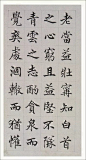 老當益壯寧知白首
之心窮且益堅不墜
青雲之志酌貪泉而
覺爽處涸轍而猶懽